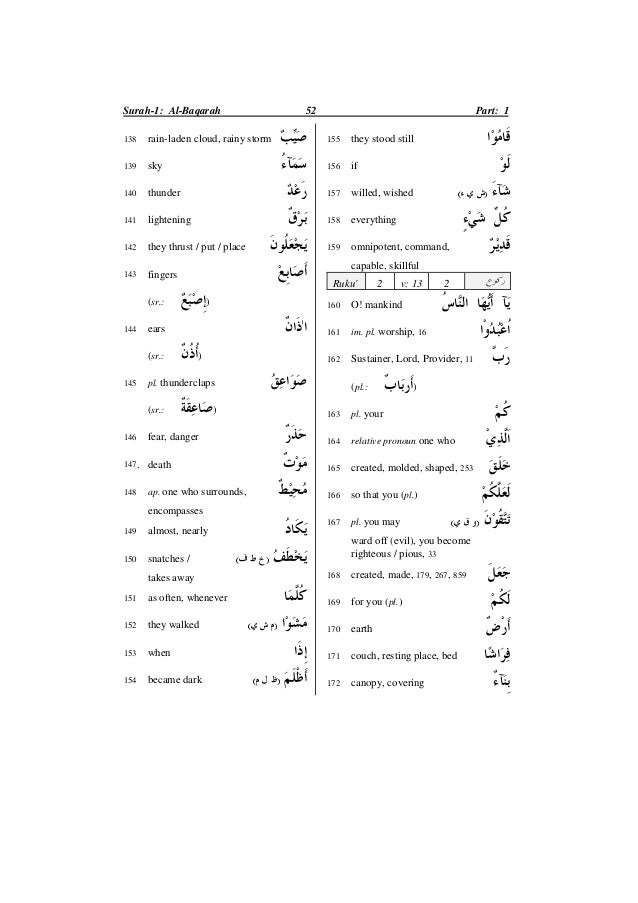 Surah-1: Al-Baqarah 52 Part: 1
138 rain-laden cloud, rainy storm صَيِّبٌ
139 sky سَمَآءُ
140 thunder رَعْدٌ
141 lightening بَرْقٌ
142 they thrust / put / place يَجْعَلُوْنَ
143 fingers أَصَابِعْ
(sr.: إِصْبَعٌ)
144 ears اذَانٌ
(sr.: أُذُنٌ)
145 pl. thunderclaps صَوَاعِقُ
(sr.: صَاعِقَةٌ)
146 fear, danger حَذَرٌ
147. death مَوْتٌ
148 ap. one who surrounds, مُحِيْطٌ
encompasses
149 almost, nearly يَكَادُ
150 snatches / (خ ط ف) يَخْطَفُ
takes away
151 as often, whenever كُلَّمَا
152 they walked (م ش ي) مَشَوْا
153 when إِذَا
154 became dark (ظ ل م) أَظْلَمَ
155 they stood still قَامُوْا
156 if لَوْ
157 willed, wished (ش ي ء) شَآءَ
158 everything كُلِّ شَيْءٍ
159 omnipotent, command, قَدِيْرٌ
capable, skillful
Ruku' 2 v: 13 2 ركوع
160 O! mankind يَآ أَيُّهَا النَّاسُ
161 im. pl. worship, 16 اُعْبُدُوْا
162 Sustainer, Lord, Provider, 11 رَبٌّ
(pl.: أَرْبَابٌ)
163 pl. your كُمْ
164 relative pronoun one who الَّذِيْ
165 created, molded, shaped, 253 خَلَقَ
166 so that you (pl.) لَعَلَّكُمْ
167 pl. you may (و ق ي) تَتَّقُوْنَ
ward off (evil), you become
righteous / pious, 33
168 created, made, 179, 267, 859 جَعَلَ
169 for you (pl.) لَكُمْ
170 earth أَرْضٌ
171 couch, resting place, bed فِرَاشًا
172 canopy, covering بِنَآءٌ